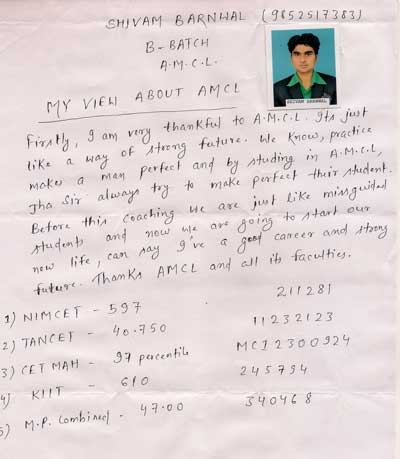 SHIVAM BARNWAL (9852517383)
B-BATCH
A.M.C.L.
SHIVAM BARNWAL
MY VIEW ABOUT AMCL
Firstly, I am very thankful to A.M.C.L. Its just
like a way of strong future. We know, practice
makes a man perfect and by studing in A.M.C.L,
Jha Sir always try to make perfect their student.
Before this coaching we are just like missguided
students and now we are going to start our
new life, can say I've a good career and strong
future. Thanks AMCL and all its faculties.
1) NIMCET - 597 211281
2) TANCET - 40.750 11232123
3) CET MAH - 97 percentile MC12300924
4) KIIT - 610 245794
5) M.P. Combined - 47.00 340468